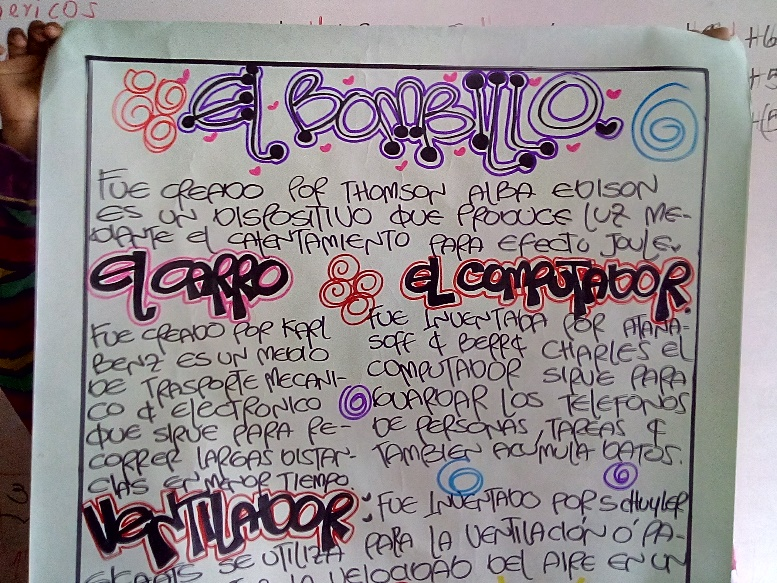 ericos
EL BOMBILLO.
FUE CREADO POR THOMSON ALBA EDISON
ES UN DISPOSITIVO QUE PRODUCE LUZ ME-
DIANTE EL CALENTAMIENTO PARA EFECTO JOULE.
EL CARRO
FUE CREADO POR KARL
BENZ ES UN MEDIO
DE TRASPORTE MECANI-
CO & ELECTRONICO
QUE SIRVE PARA RE-
CORRER LARGAS DISTAN-
CIAS EN MENOR TIEMPO.
EL COMPUTADOR.
FUE INVENTADA POR ATANA-
SOFF & BERR& CHARLES EL
COMPUTADOR SIRVE PARA
GUARDAR LOS TELEFONOS
DE PERSONAS, TAREAS &
TAMBIEN ACUMULA DATOS.
VENTILADOR: FUE INVENTADO POR SCHUYLER
SE UTILIZA PARA LA VENTILACIÓN Ó PA-
LA VELOCIDAD DEL AIRE EN UN